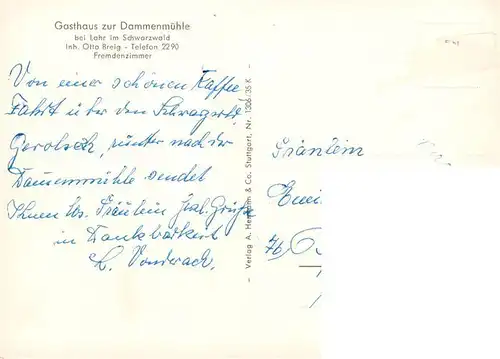 Gasthaus zur Dammenmühle
bei Lahr im Schwarzwald
Inh. Otto Breig - Telefon 2290
Fremdenzimmer
Von einer schönen Kaffee
Fahrt über den Schwarzwald
Gerolseck, runter nach der
Dammenmühle sendet
Ihnen lbs. Fräulein herzl. Grüße
in Dankbarkeit
Vonderach.
- Verlag A. & Co., Stuttgart, Nr. 1306/35 K -
Fräulein
76